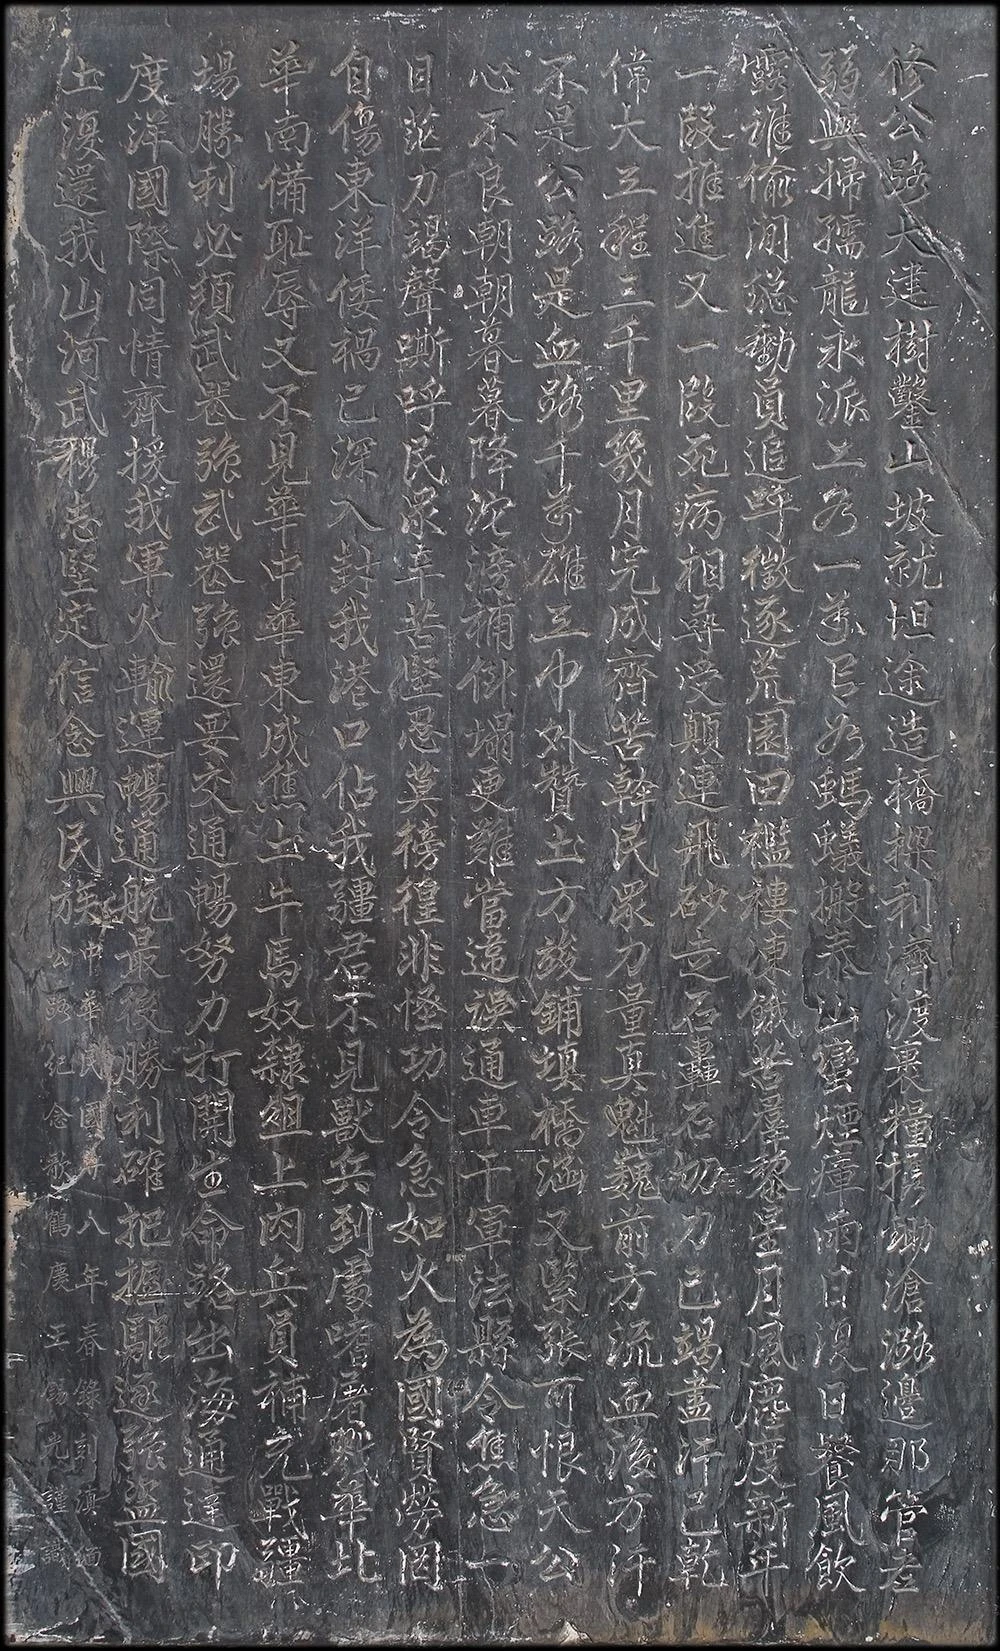 修公路大建樹鑿山坡就坦途造橋樑利濟渡裹糧携鋤滄潞邊那管老
弱與婦孺龍永派工如一萬官如螞蟻搬泰山蠻煙瘴雨日復日餐風飲
露誰偷閒總動員追呼徵逐荒園田襤褸凍餓苦羣黎星月風塵度新年
一段推進又一段死病相尋受顛連飛砂走石轟石切力已竭盡汗已乾
偉大工程三千里幾月完成齊苦幹民眾力量真魁巍前方流血後方汗
不是公路是血路千萬雄工中外贊土方竣鋪填橋涵又緊張可恨天公
心不良朝朝暮暮降沱滂補倒塌更難當違誤通車干軍法縣令焦急一
目茫力竭聲嘶呼民眾辛苦堅忍莫徬徨非怪功令急如火為國賢勞罔
自傷東洋倭禍已深入封我港口佔我疆君不見獸兵到處嗜屠戮華北
華南備恥辱又不見華中華東成焦土牛馬奴隸俎上肉兵員補充戰疆
場勝利必須武器強武器強還要交通暢努力打開生命路出海通達印
度洋國際同情齊援我軍火輸運暢通航最後勝利確把握驅逐強盜國
土復還我山河武穆志堅定信念興民族
中華民國廿八年春錄刻滇緬
公路紀念歌鶴慶王錫光謹識